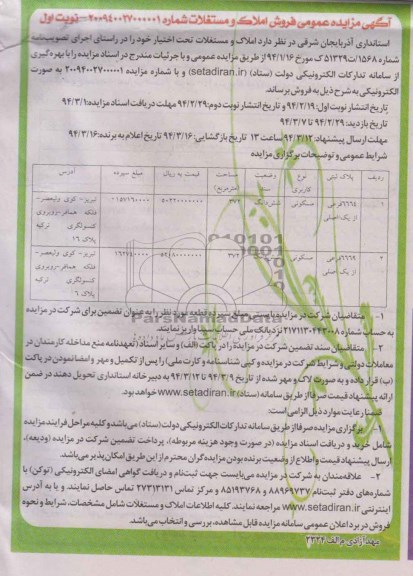 آگهی مزایده عمومی فروش املاک و مستغلات شماره ۲۰۰۹۴۰۰۲۷۰۰۰۰۰۱ - نوبت اول
استانداری آذربایجان شرقی در نظر دارد املاک و مستغلات تحت اختیار خود را در راستای اجرای تصویب‌نامه
شماره ۱۵۶۸/ت۵۱۳۲۹ک مورخ ۹۴/۱/۱۶ از طریق مزایده عمومی و با جزئیات مندرج در اسناد مزایده را با بهره‌گیری
از سامانه تدارکات الکترونیکی دولت (ستاد) (setadiran.ir) و با شماره مزایده ۲۰۰۹۴۰۰۲۷۰۰۰۰۰۱ به صورت
الکترونیکی به شرح ذیل به فروش برساند.
تاریخ انتشار نوبت اول: ۹۴/۲/۱۹ و تاریخ انتشار نوبت دوم: ۹۴/۲/۲۹ مهلت دریافت اسناد مزایده: ۹۴/۳/۱
تاریخ بازدید: ۹۴/۲/۲۹ تا ۹۴/۳/۷
مهلت ارسال پیشنهاد: ۹۴/۳/۱۲ ساعت ۱۳ تاریخ بازگشایی: ۹۴/۳/۱۶ تاریخ اعلام به برنده: ۹۴/۳/۱۶
شرایط عمومی و توضیحات برگزاری مزایده
ردیف پلاک ثبتی نوع کاربری وضعیت مساحت (مترمربع) قیمت به ریال مبلغ سپرده آدرس
۱ ۶۶۶۸ فرعی از یک اصلی مسکونی ششدانگ ۳۷۲ تبریز- کوی ولیعصر- فلکه همافر-روبروی کنسولگری ترکیه پلاک ۱۶
۲ ۶۶۶۹ فرعی از یک اصلی مسکونی ۳۷۲ تبریز- کوی ولیعصر- فلکه همافر-روبروی کنسولگری ترکیه پلاک ۱۶
ParsNamadData
۱- متقاضیان شرکت در مزایده بایستی مبلغ سپرده قطعه مورد نظر را به عنوان تضمین برای شرکت در مزایده
به حساب شماره ۲۱۷۱۱۳۰۴۴۳۰۰۸ نزد بانک ملی حساب سیبا واریز نمایند.
۲- متقاضیان سند تضمین شرکت در مزایده را در پاکت (الف) و سایر اسناد (تعهدنامه منع مداخله کارمندان در
معاملات دولتی و شرایط شرکت در مزایده و کپی شناسنامه و کارت ملی) را پس از تکمیل و مهر و امضا نمودن در پاکت
(ب) قرار داده و به صورت لاک و مهر شده از تاریخ ۹۴/۳/۹ تا ۹۴/۳/۱۲ به دبیرخانه استانداری تحویل دهند در ضمن
ارائه پیشنهاد قیمت صرفا از طریق سامانه (ستاد) www.setadiran.ir خواهد بود.
ضمنا رعایت موارد ذیل الزامی است:
برگزاری مزایده صرفا از طریق سامانه تدارکات الکترونیکی دولت (ستاد) می‌باشد و کلیه مراحل فرایند مزایده
شامل خرید و دریافت اسناد مزایده (در صورت وجود هزینه مربوطه)، پرداخت تضمین شرکت در مزایده (ودیعه)،
ارسال پیشنهاد قیمت و اطلاع از وضعیت برنده بودن مزایده‌گران محترم از این طریق امکان‌پذیر می‌باشد.
۲- علاقه‌مندان به شرکت در مزایده می‌بایست جهت ثبت‌نام و دریافت گواهی امضای الکترونیکی (توکن) با
شماره‌های دفتر ثبت‌نام ۸۸۹۶۹۷۳۷ و ۸۵۱۹۳۷۶۸ و مرکز تماس ۲۷۳۱۳۱۳۱ تماس حاصل نمایند و یا به آدرس
اینترنتی www.setadiran.ir مراجعه نمایند. کلیه اطلاعات املاک و مستغلات شامل مشخصات، شرایط و نحوه
فروش در برد اعلان عمومی سامانه مزایده قابل مشاهده، بررسی و انتخاب می‌باشد.
مهد آزادی م الف ۲۳۳۴